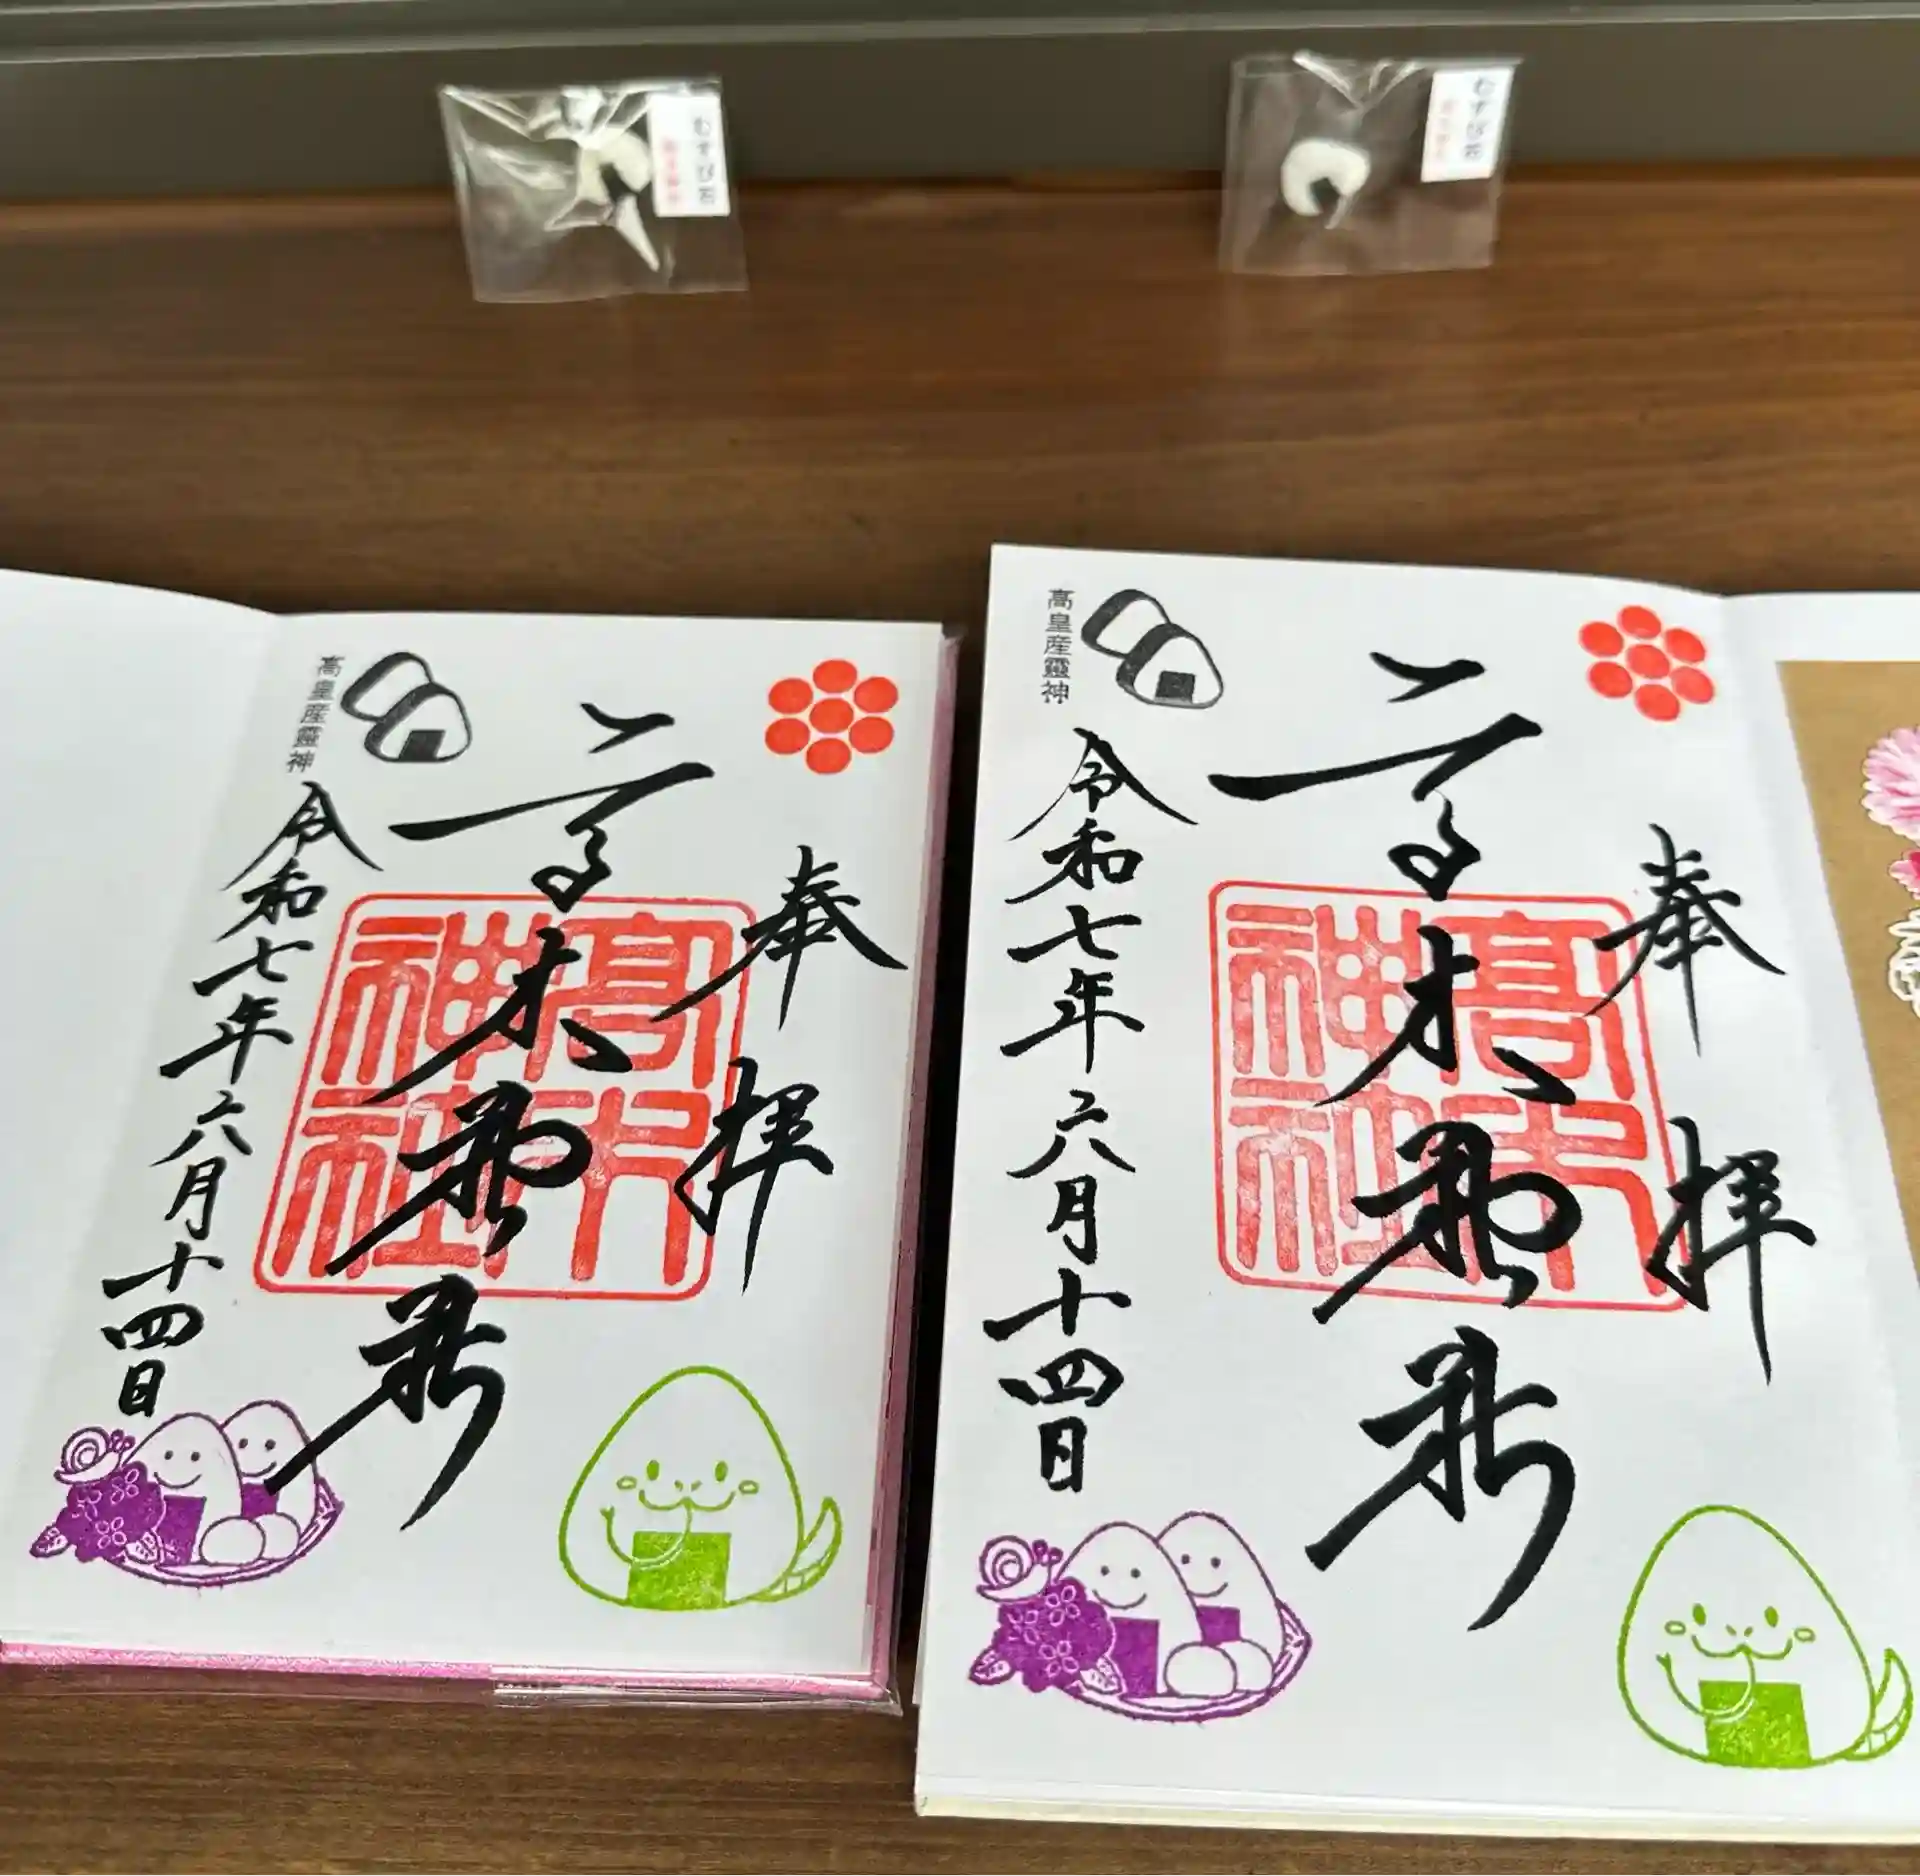 むすび石
むすび石
奉拝
高木神社
高木神社
高皇産靈神
令和七年六月十四日
奉拝
高木神社
高木神社
高皇産靈神
令和七年六月十四日